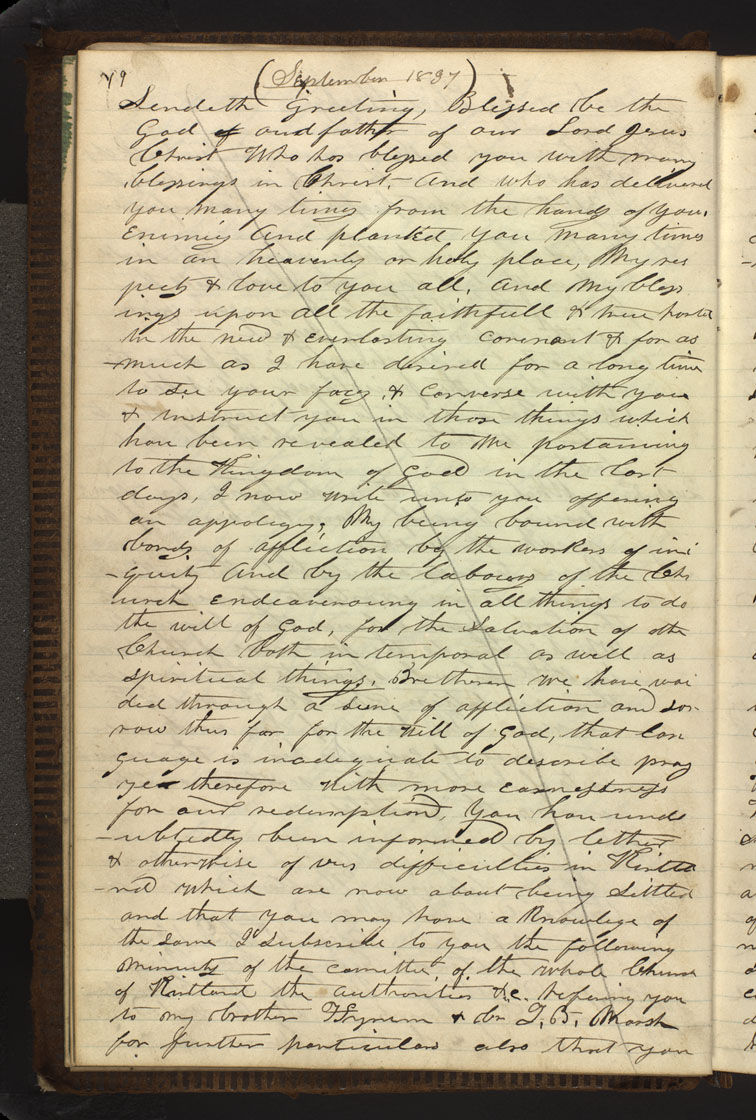 79 (September 1837)
Sendeth Greeting, Blessed be the
God of and father of our Lord Jesus
Christ Who has blessed you with many
blessings in Christ, And who has delivered
you many times from the hands of your
Enemies And planted you many times
in an heavenly or holy place, My res
pects & love to you all, And My bless
ings upon all the faithfull & true harted
in the new & everlasting covenant & for as
-much as I have desired for a long time
to see your faces, & converse with you
& instruct you in those things which
have been revealed to me partaining
to the Kingdom of God in the last
days, I now write unto you offering
an appology, My being bound with
bonds of affliction by the workers of ini
-quity And by the labours of the Ch
urch endeavouring in all things to do
the will of God, for the Salvation of the
Church both in temporal as well as
spiritual things. Bretheren we have wai
ded through a scene of affliction and sor
row thus far for the will of God, that lan
guage is inadequate to describe pray
ye therefore with more earnestness
for our redemption, You have undo
-ubtedly been informed by letter
& otherwise of our difficulties in Kirtla
-nd which are now about being Settled
and that you may have a Knowledge of
the same I Subscribe to you the following
minuits of the comittee, of the whole Church
of Kirtland the authorities &.c. refering you
to my brother Hyrum & br T. B. Marsh
for further particulars also that you